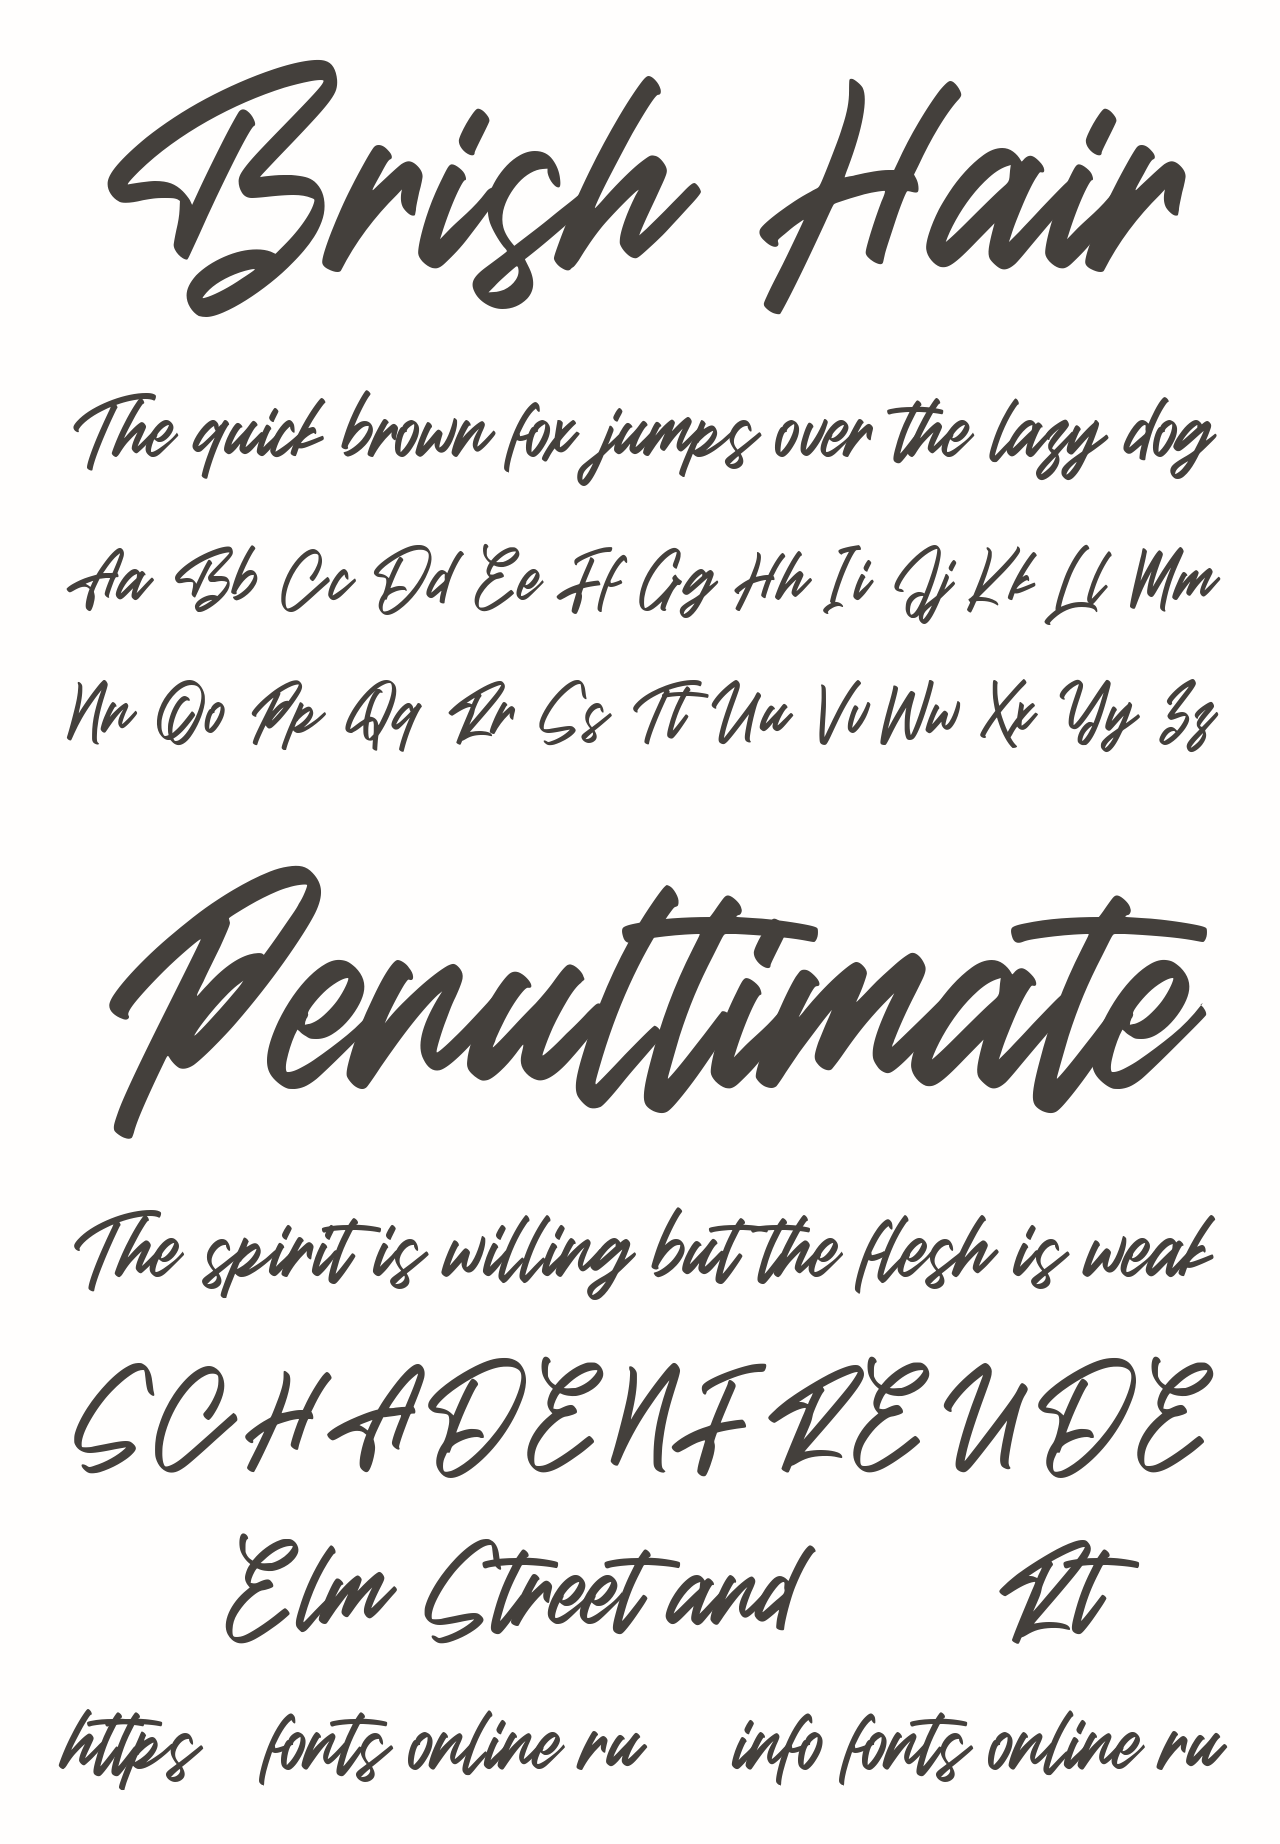 Brish Hair
The quick brown fox jumps over the lazy dog
Aa Bb Cc Dd Ee Ff Gg Hh Ii Jj Kk Ll Mm
Nn Oo Pp Qq Rr Ss Tt Uu Vv Ww Xx Yy Zz
Penultimate
The spirit is willing but the flesh is weak
SCHADENFREUDE
Elm Street and Rt
https fonts online ru info fonts online ru